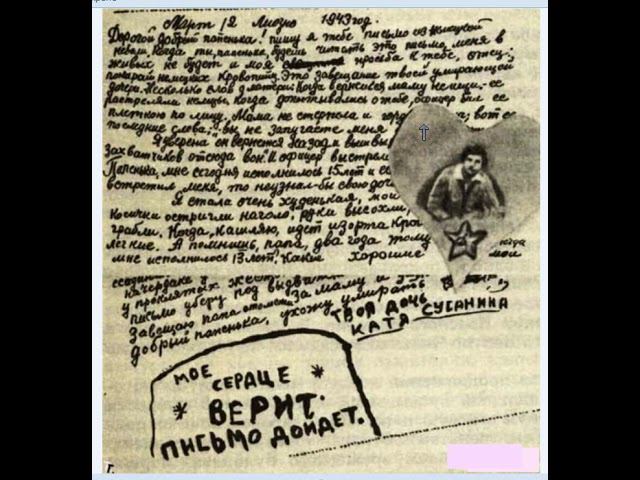 Март 12 Лиозно 1943 год.
Дорогой добрый папенька! пишу я тебе письмо из немецкой
неволи. Когда ты, папенька, будешь читать это письмо, меня в
живых не будет и моя просьба к тебе, отец:
покарай немецких кровопийц. Это завещание твоей умирающей
дочери. Несколько слов о матери. Когда вернешься маму не ищи. ее
расстреляли немцы. Когда допытывались о тебе, офицер бил ее
плеткою по лицу. Мама не стерпела и вот ее
последние слова: "вы не запугаете меня
Я уверена он вернется назад и вышвы
захватчиков отсюда вон". И офицер выстрел
Папенька, мне сегодня исполнилось 15 лет и ес
встретил меня, то неузнал-бы свою доч
Я стала очень худенькая, мои
Косички остригли наголо, руки высохли,
грабли. Когда кашляю, идет изорта кро
легкие. А помнишь, папа, два года тому
мне исполнилось 13 лет. Какие хорошие
когда
мои
у проклятых
письмо уберу под
Завещаю папа отомсти за маму и
добрый папенька, ухожу умирать
ТВОЯ ДОЧЬ
КАТЯ СУСАНИНА
МОЕ
СЕРДЦЕ
ВЕРИТ.
ПИСЬМО ДОЙДЕТ.